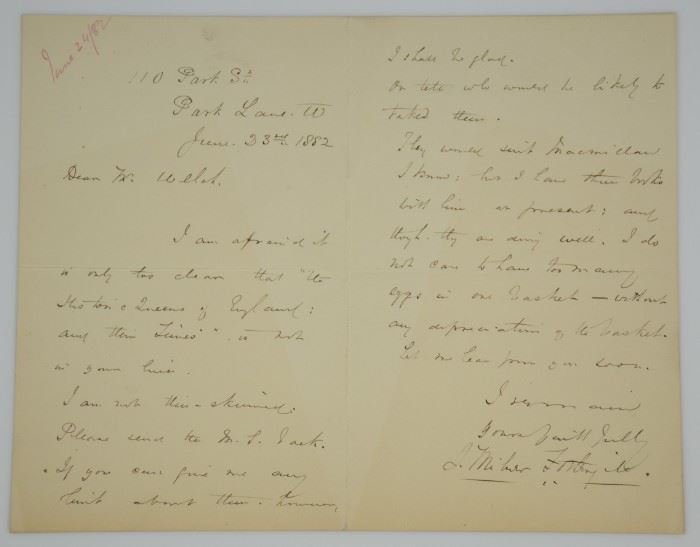 June 24/82
110 Park St
Park Lane. W
June. 23rd 1882
Dear Mr. Welsh.
I am afraid it
is only too clear that "the
Historic Queens of England:
and their Times". is not
in your line.
I am not thin-skinned.
Please send the M.S. back.
If you can give me any
hint about them. however,
I shall be glad.
or tell who would be likely to
take them.
They would suit Macmillan
I know: but I have three books
with him at present; and
though they are doing well. I do
not care to have too many
eggs in one basket — without
any depreciation of the basket.
Let me hear from you soon.
I remain
Yours faithfully
J. Milner Fothergill.